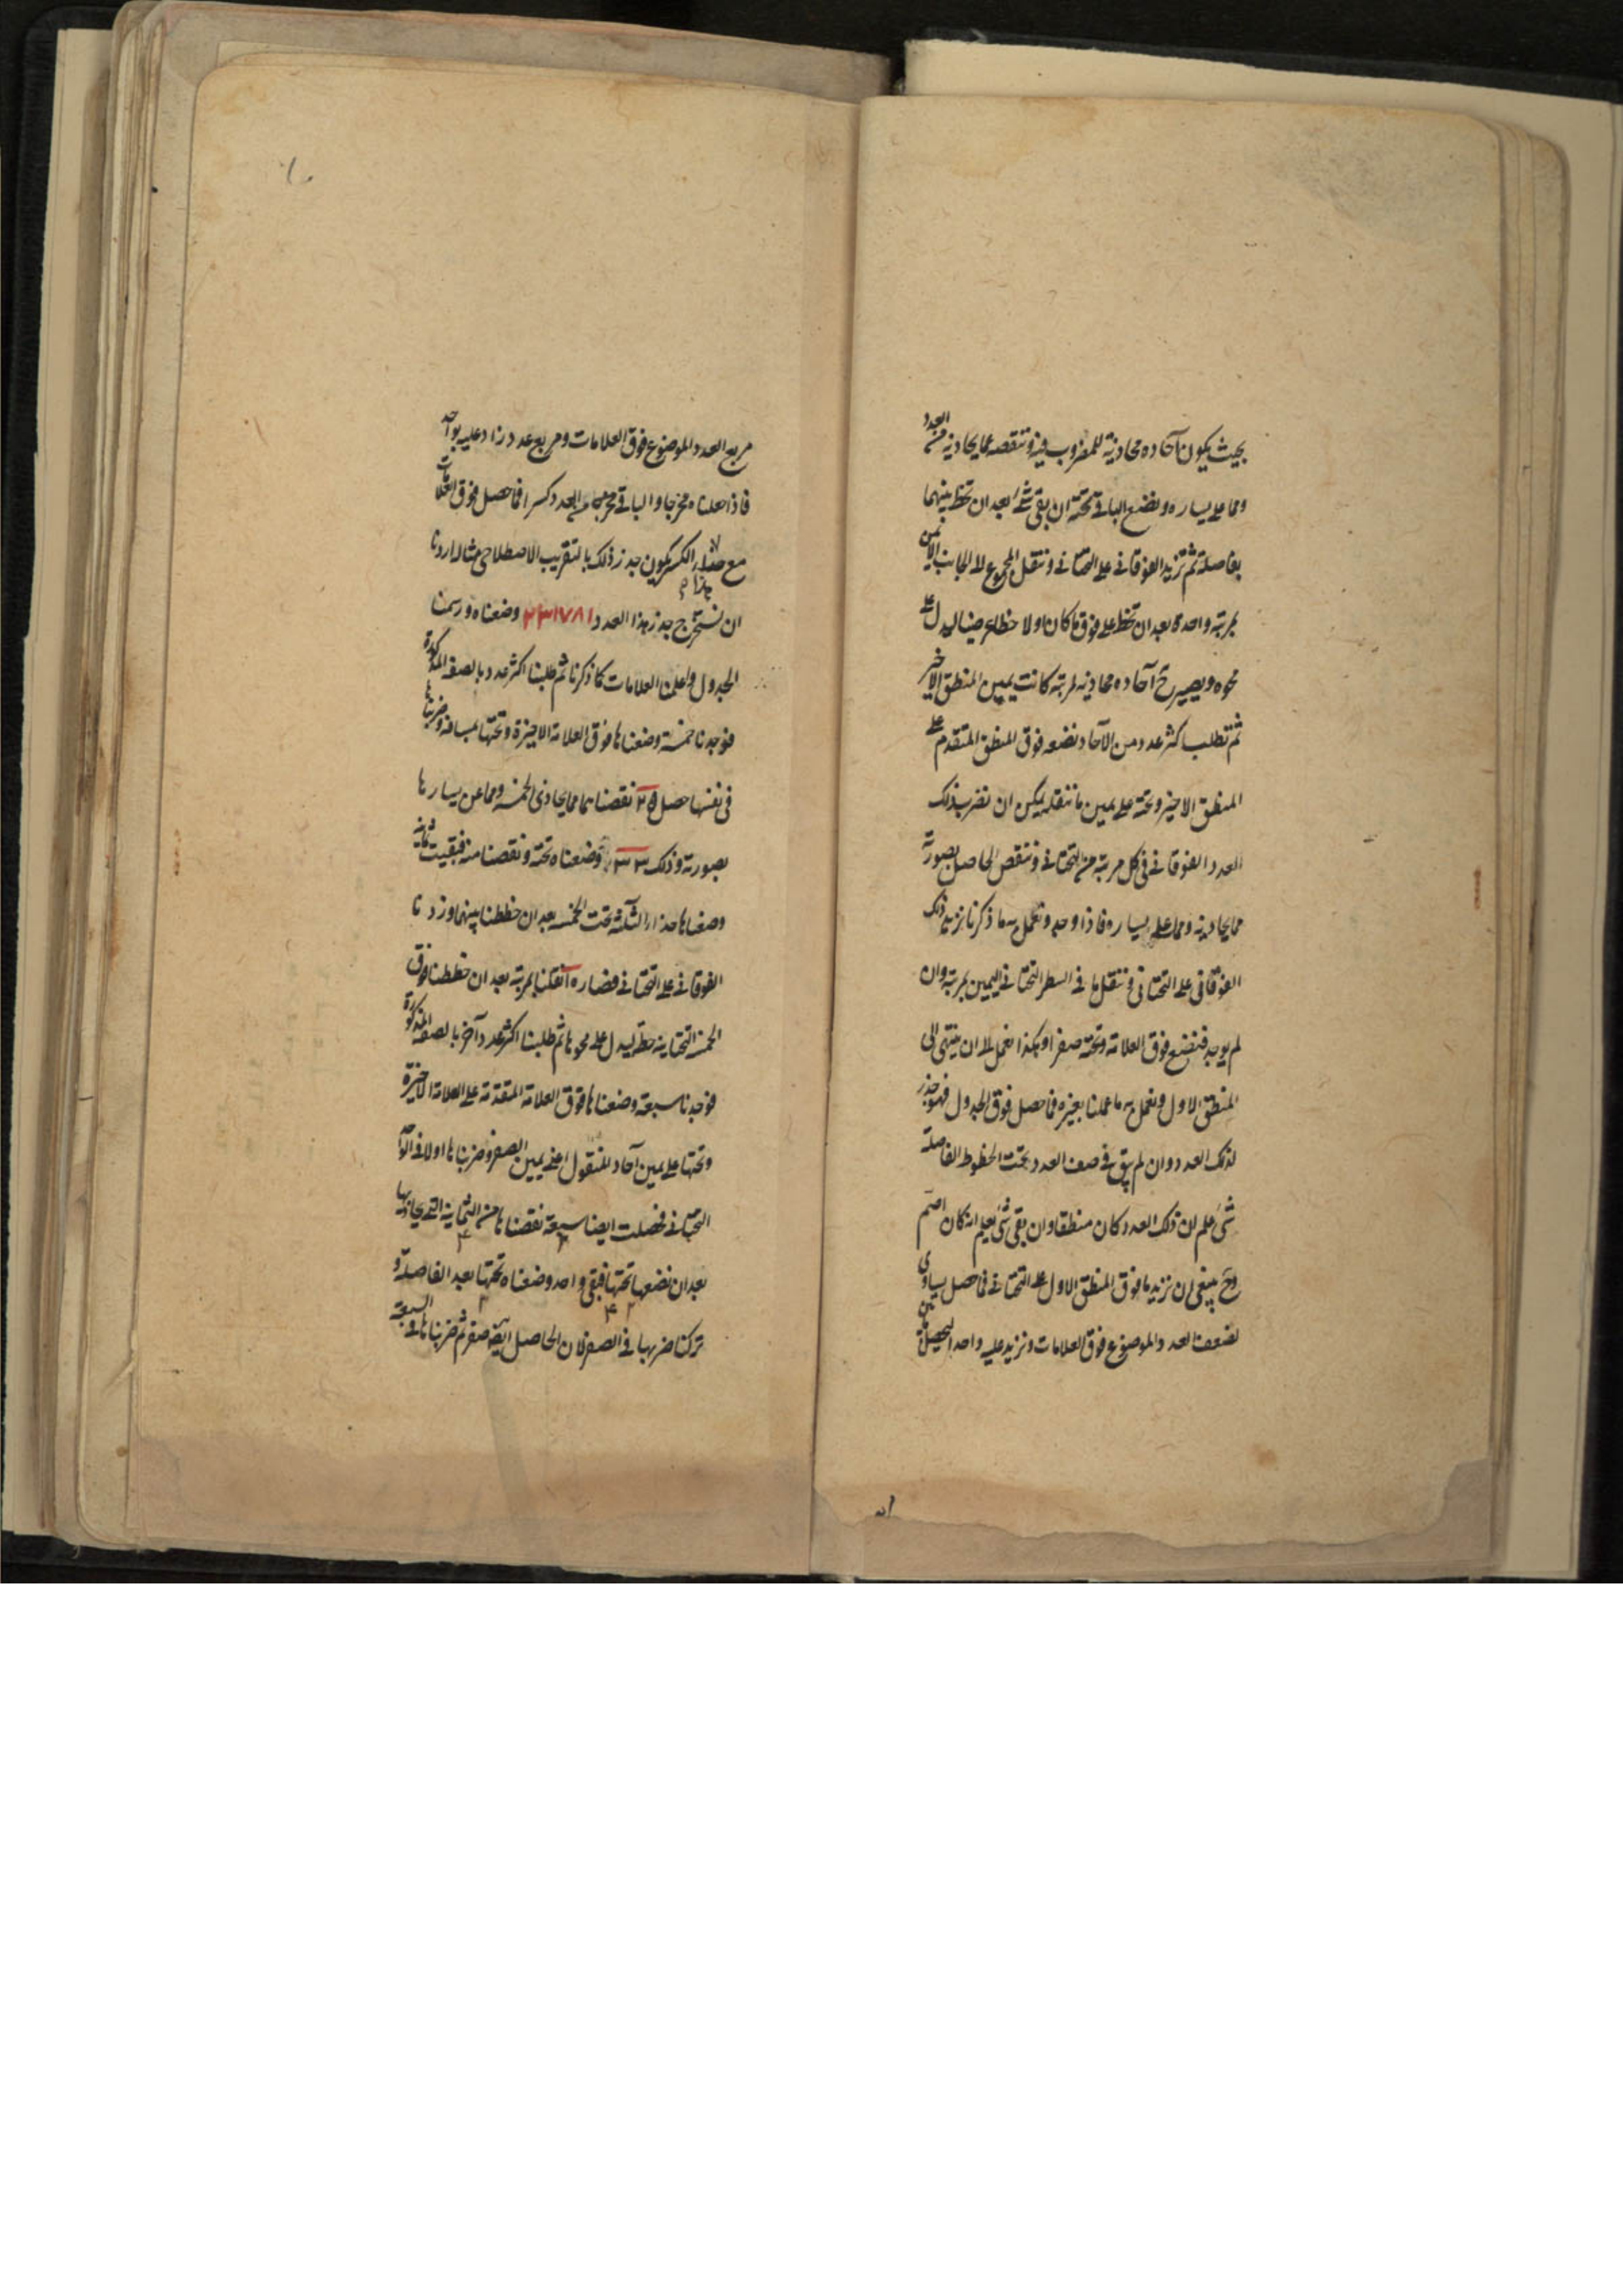 بحيث يكون آحاده محاذية للمضروب فيه وتنقصه مما يحاذيه من العدد
ومما على يساره وتضع الباقى تحته ان بقى شئ بعد ان تخط بينهما
بفاصلة ثم تزيد الفوقانى على التحتانى وتنقل المجموع الى الجانب الايمن
بمرتبة واحدة بعد ان تخط على فوق ما كان اولا خطا عرضيا ليدل على
محوه ويصير ح آحاده محاذية لمرتبة كانت يمين المنطق الاخير
ثم تطلب اكثر عدد من الآحاد نضعه فوق المنطق المتقدم على
المنطق الاخير وتحته على يمين ما ننقله يمكن ان نضرب ذلك
العدد الفوقانى فى كل مرتبة من التحتانى وننقص الحاصل بصورته
مما يحاذيه ومما على يساره فاذا وجد ونعمل به ما ذكرنا نزيد ذلك
الفوقانى على التحتانى وننقل ما فى السطر التحتانى اليمين بمرتبة وان
لم يوجد فنضع فوق العلامة وتحته صفرا وهكذا نعمل الى ان ينتهى الى
المنطق الاول ونعمل به ما عملنا بغيره فما حصل فوق الجدول فهو جذر
لذلك العدد وان لم يبق فى صف العدد تحت الخطوط الفاصلة
شئ علم ان ذلك العدد كان منطقا وان بقى شئ يعلم انه كان اصم
وح ينبغى ان نزيد ما فوق المنطق الاول على التحتانى فما حصل يساوى
لضعف العدد الموضوع فوق العلامات ونزيد عليه واحدا ليحصل
مربع العدد الموضوع فوق العلامات ومربع عدد زاد عليه بواحد
فاذا جعلناه مخرجا والباقى من العدد كسرا فما حصل فوق العلامات
مع هذا الكسر يكون جذر ذلك بالتقريب الاصطلاحى مثاله اردنا
ان نستخرج جذر هذا العدد ٣٣١٧٨١ وضعناه ورسمنا
الجدول واعلمنا العلامات كما ذكرنا ثم طلبنا اكثر عدد بالصفة المذكورة
فوجدنا خمسة وضعناها فوق العلامة الاخيرة وتحتها بمسافة وضربناها
فى نفسها حصل ٢٥ نقصناها مما يحاذى الخمسة ومما عن يسارها
بصورته وذلك ٣٣ وضعناه تحته ونقصنا منه فبقيت ثمانية
وضعناها حذاء الثلثة تحت الخمسة بعد ان خططنا بينهما وزدنا
الفوقانى على التحتانى فصار ١٠ نقلنا بمرتبة بعد ان خططنا فوق
الخمسة التحتانية خطا ليدل على محوها ثم طلبنا اكثر عدد آخر بالصفة المذكورة
فوجدنا سبعة وضعناها فوق العلامة المتقدمة على العلامة الاخيرة
وتحتها على يمين آحاد المنقول اعنى يمين الصفر وضربناها اولا فى الواحد
التحتانى فحصلت ايضا سبعة نقصناها من الثمانية التى يحاذيها
بعد ان نضعها تحتها فبقى واحد وضعناه تحتها بعد الفاصلة و
تركنا ضربها فى الصفر لان الحاصل ايضا صفر ثم ضربناها فى السبعة